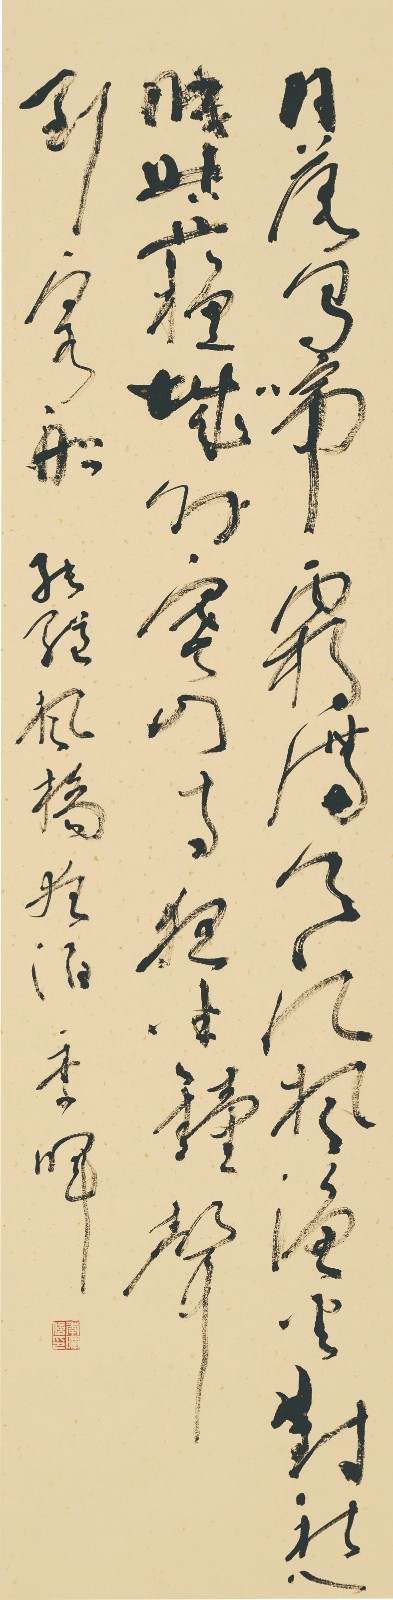 月落烏啼霜滿天江楓漁火對愁
眠姑蘇城外寒山寺夜半鐘聲
到客船 張繼楓橋夜泊 季暉